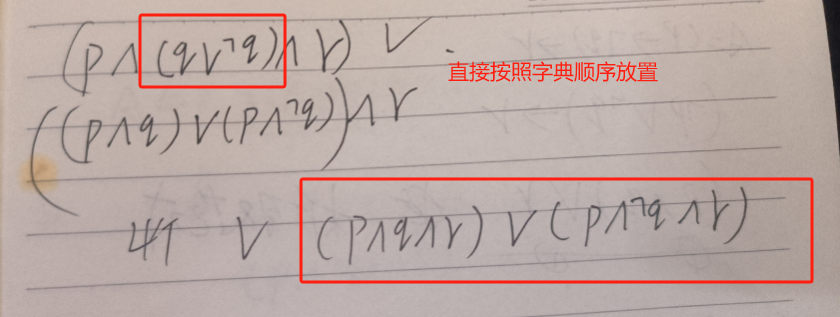 (p∧(q∨¬q)∧r) ∨ .
直接按照字典顺序放置
((p∧q)∨(p∧¬q))∧r
∨ (p∧q∧r)∨(p∧¬q∧r)